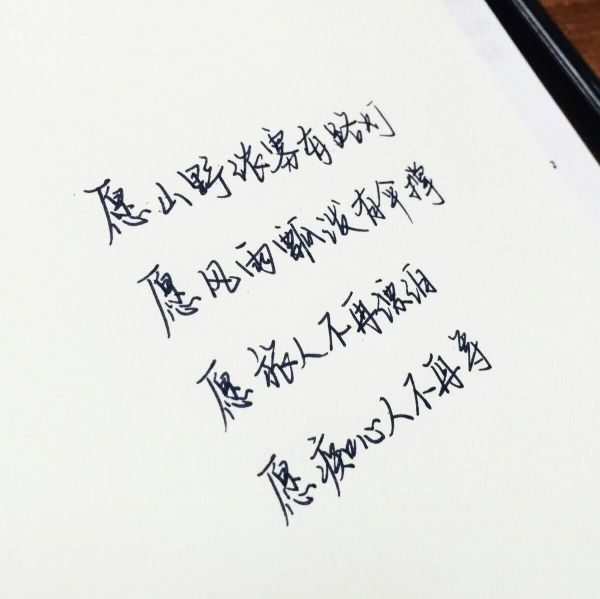 愿山野浓雾有路灯
愿风雨飘泼有伞撑
愿旅人不再漂泊
愿痴心人不再等